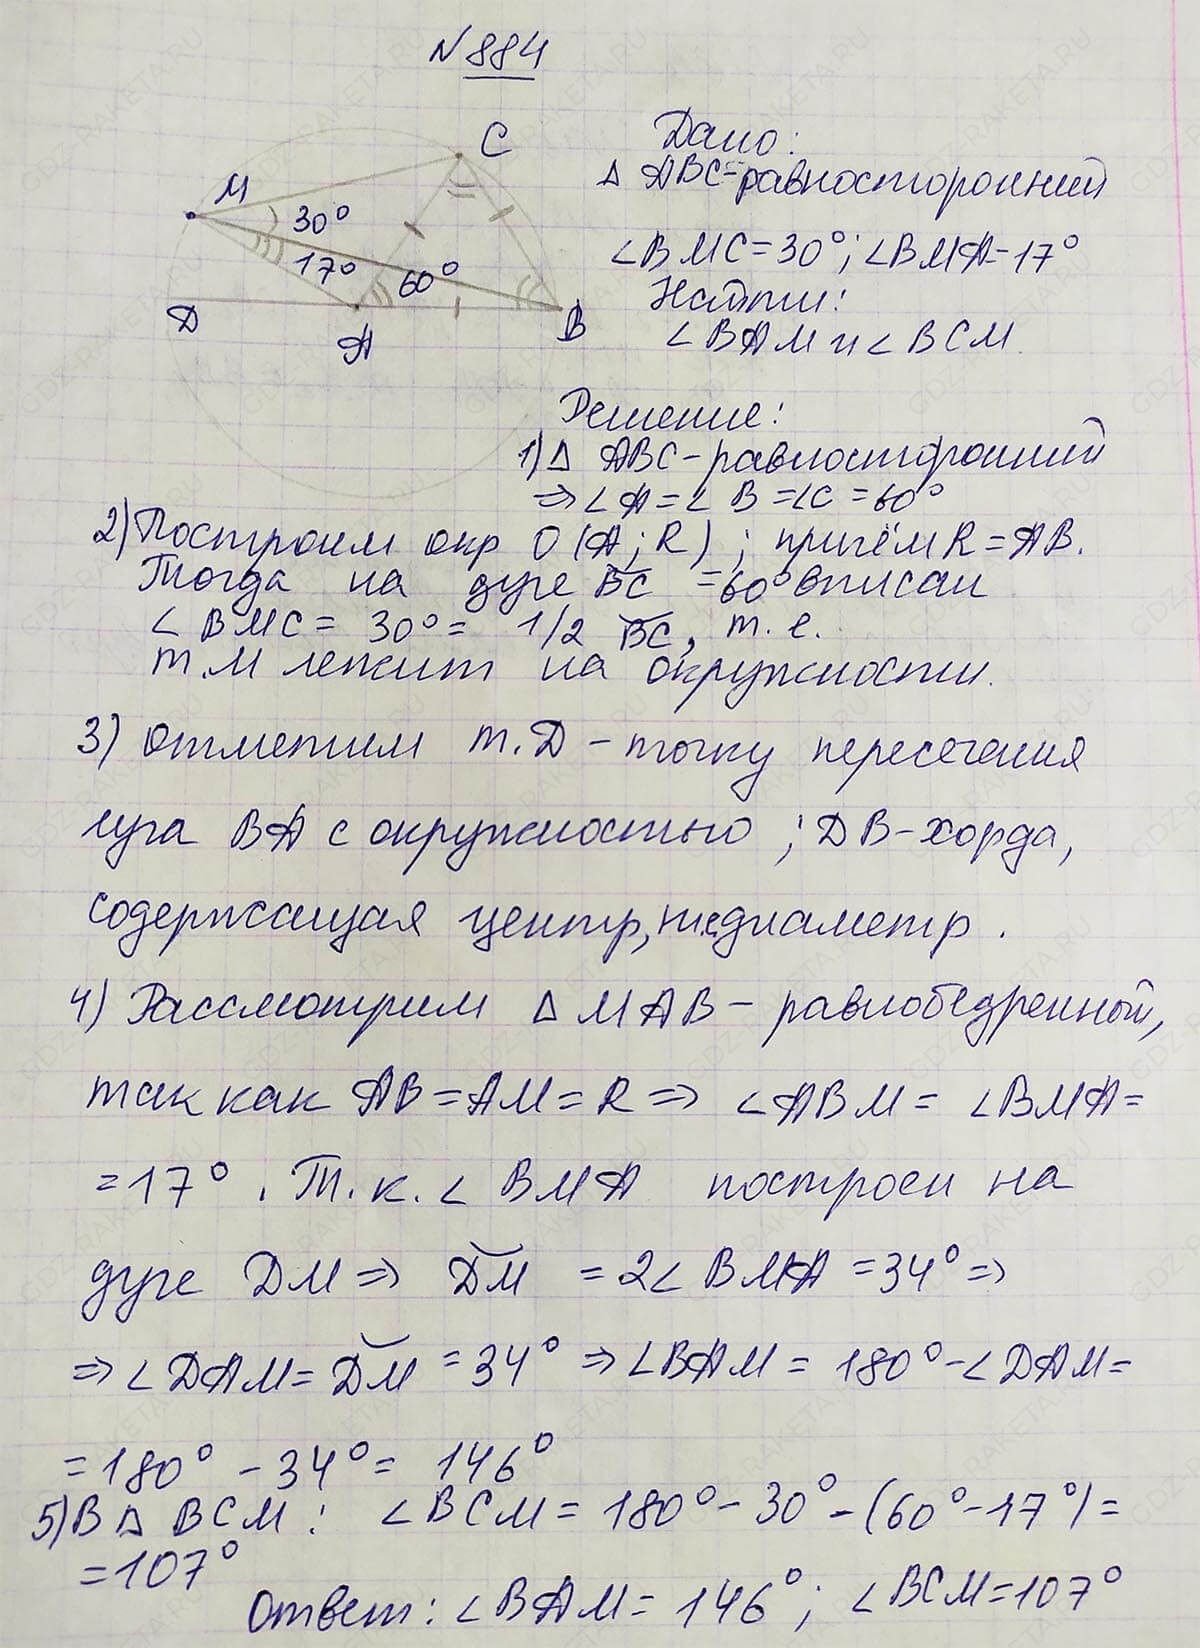 N 884
C
M
30°
17°
60°
D
A
B
Дано:
△ ABC-равносторонний
∠BMC=30°; ∠BMA-17°
Найти:
∠BAM и ∠BCM.
Решение:
1) △ ABC-равносторонний
⇒ ∠A=∠B=∠C=60°
2) Построим окр O(A; R); причём R=AB.
Тогда на дуге BC =60° вписан
∠BMC= 30°= 1/2 BC, т. е.
т. M лежит на окружности.
3) Отметим т. D - точку пересечения
луча BA с окружностью; DB-хорда,
содержащая центр, диаметр.
4) Рассмотрим △ MAB - равнобедренный,
так как AB=AM=R ⇒ ∠ABM= ∠BMA=
=17°. Т. к. ∠BMA построен на
дуге DM ⇒ DM =2∠BMA =34° ⇒
⇒ ∠DAM= DM =34° ⇒ ∠BAM= 180°-∠DAM=
=180° -34°= 146°
5) В △ BCM: ∠BCM=180°-30°-(60°-17°)=
=107°
Ответ: ∠BAM= 146°; ∠BCM=107°